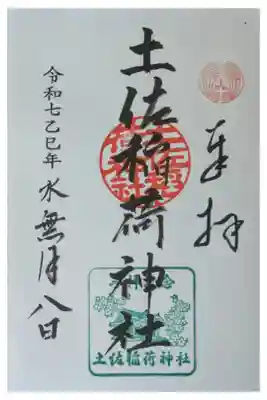 奉拝
土佐稲荷神社
令和七乙巳年 水無月八日
土佐稲荷神社